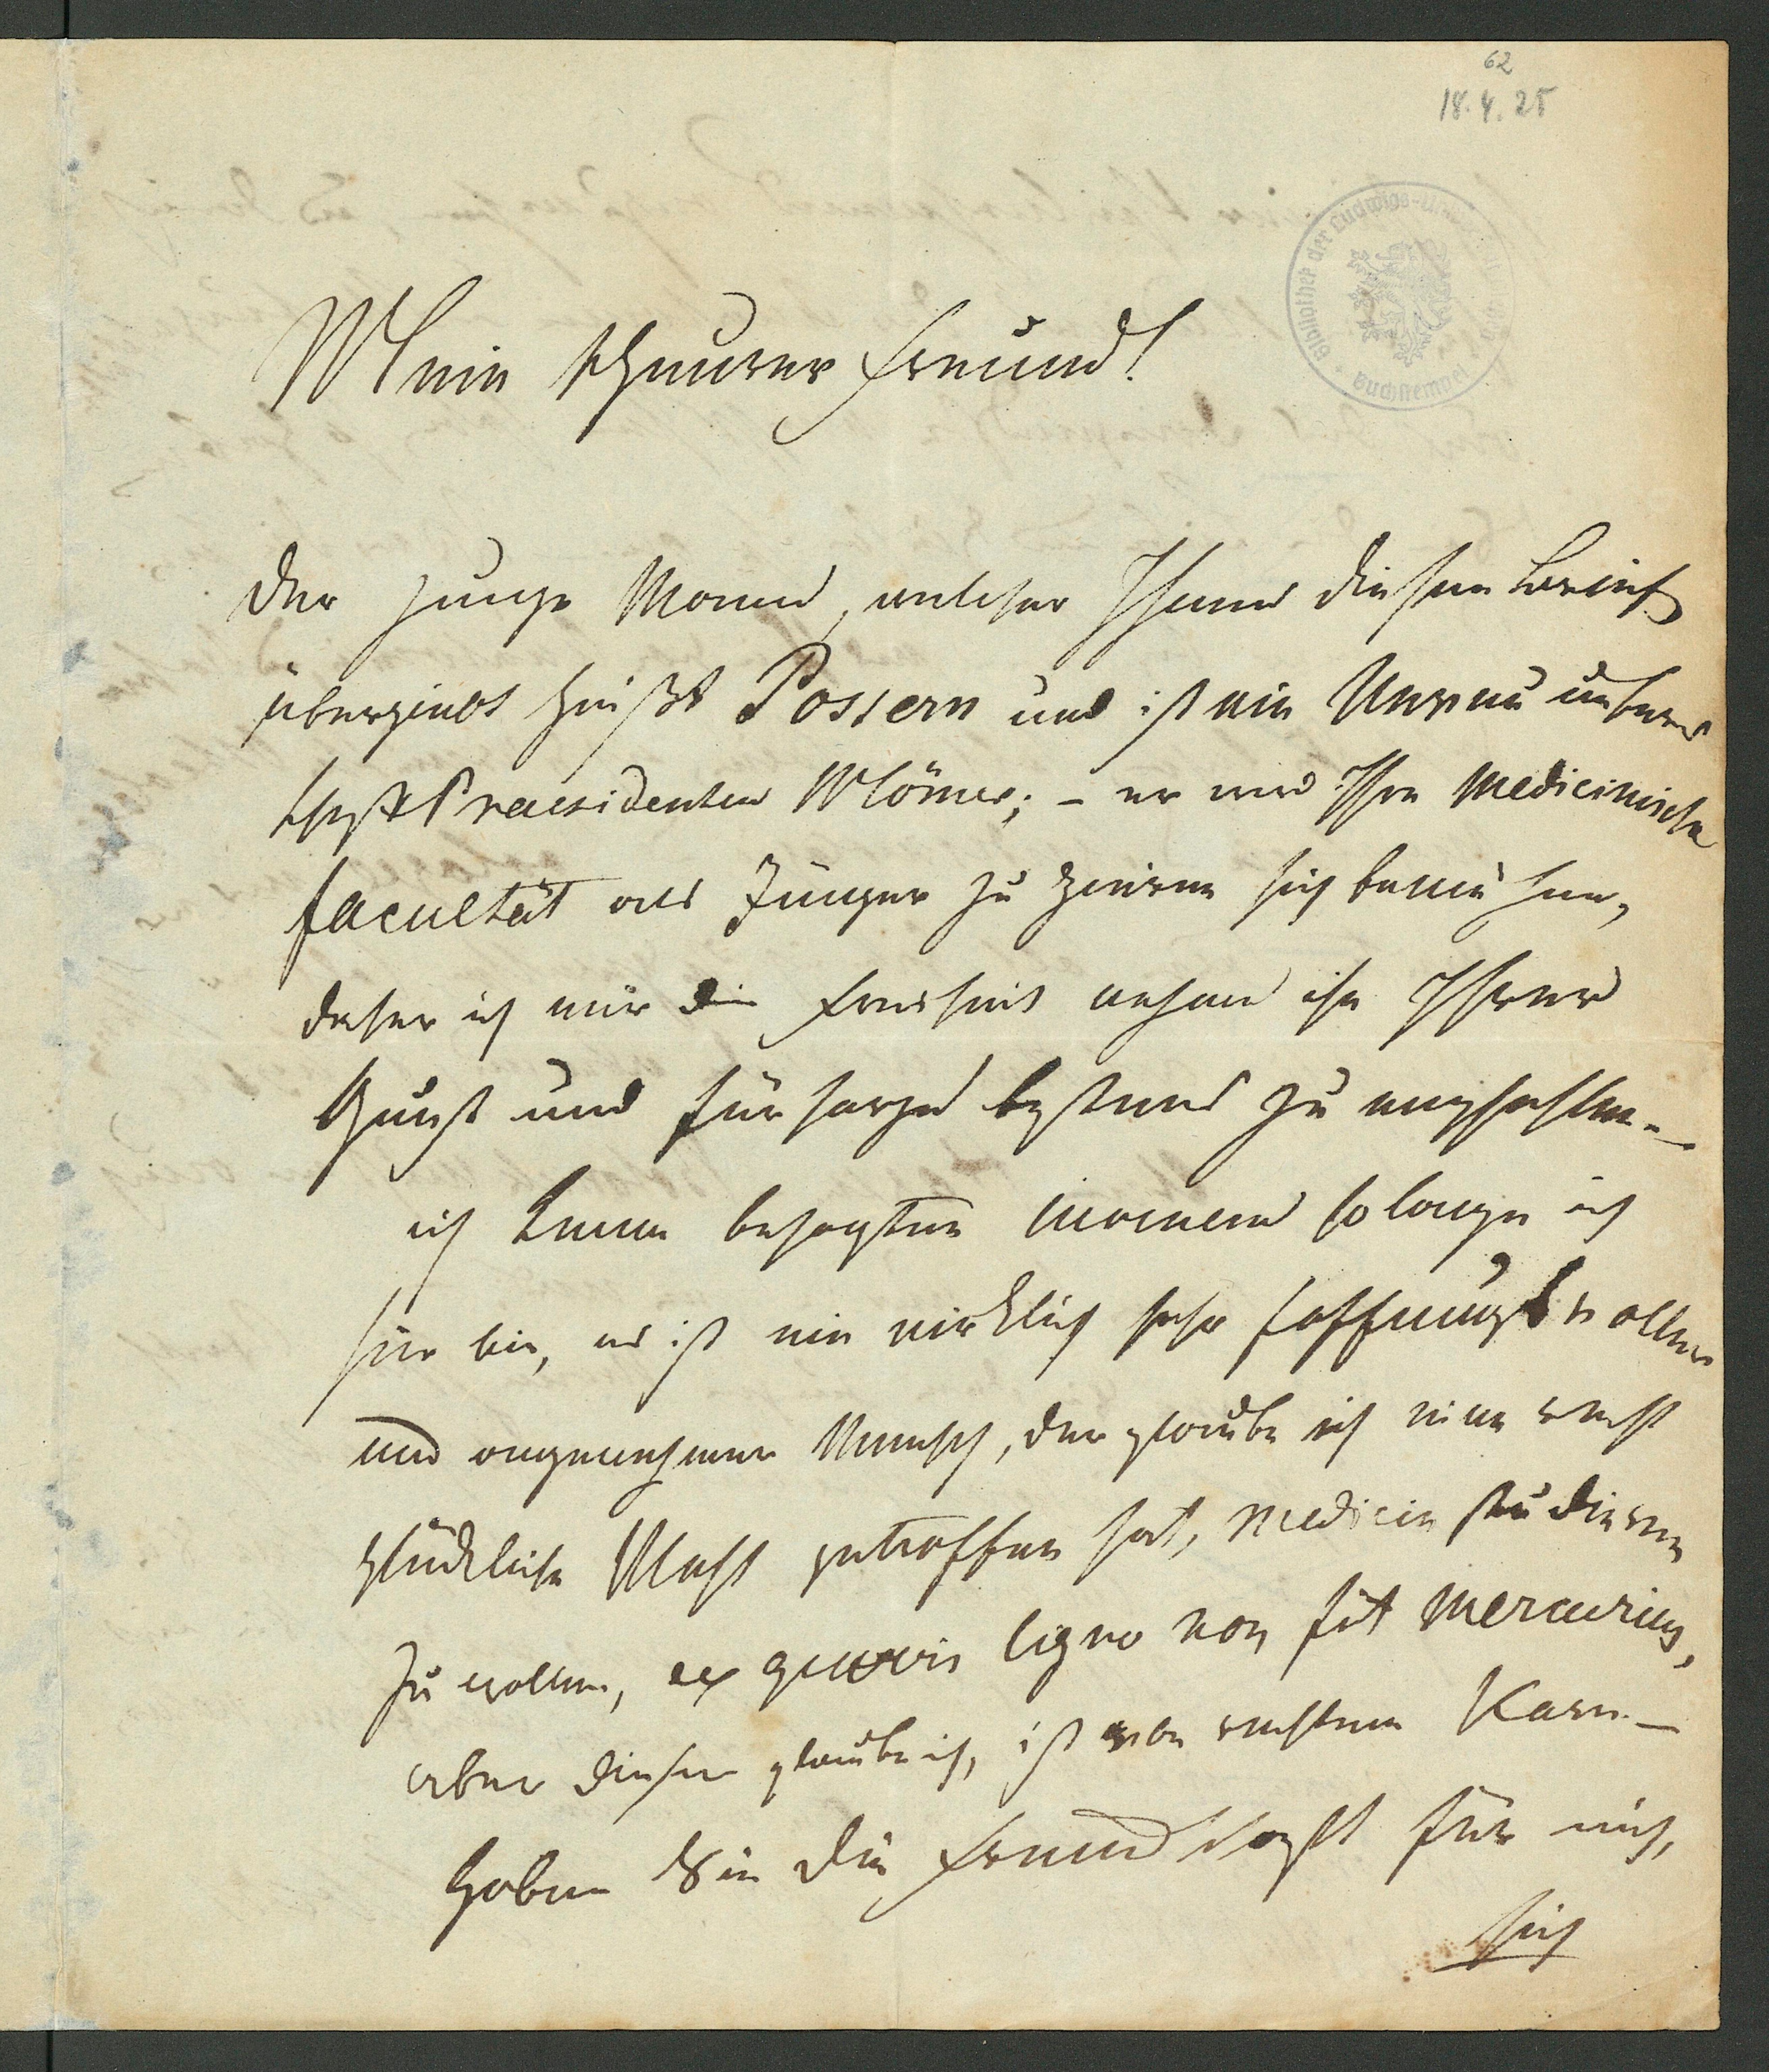 62
18.4.25
Bibliothek der Ludwigs-
Buchstempel
Mein theurer Freund!
der junge Mann, welcher Ihnen diesen Brief
übergiebt heißt Possern und ist ein Neveu unseres
Praesidenten Mömer; – er wird Ihre medicinische
facultät als Jünger zu zieren sich bemühen,
daher ich mir die Freiheit nehme ihn Ihrer
Gunst und fürsorge bestens zu empfehlen. –
ich kenne besagten iuvenem so lange ich
hier bin, es ist ein wirklich sehr hoffnungsvoller
und angenehmer Mensch, der glaube ich eine recht
glückliche Wahl getroffen hat, Medicin studieren
zu wollen, ex quovis ligno non fit Mercurius,
aber dieser glaube ich, ist von rechtem Kern –
haben Sie die Freundschaft für mich,
sich